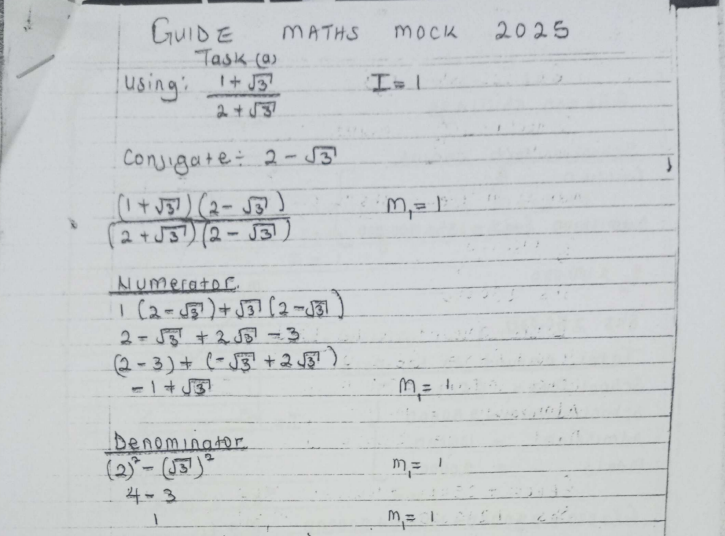 GUIDE MATHS MOCK 2025
Task (a)
Using: (1 + √3)/(2 + √3) I = 1
Conjigate ÷ 2 - √3
(1 + √3)(2 - √3)/(2 + √3)(2 - √3) M₁ = 1
Numerator
1 (2 - √3) + √3 (2 - √3)
2 - √3 + 2√3 - 3
(2 - 3) + (-√3 + 2√3)
-1 + √3 M₁ = 1
Denominator
(2)² - (√3)² M₁ = 1
4 - 3
1 M₁ = 1